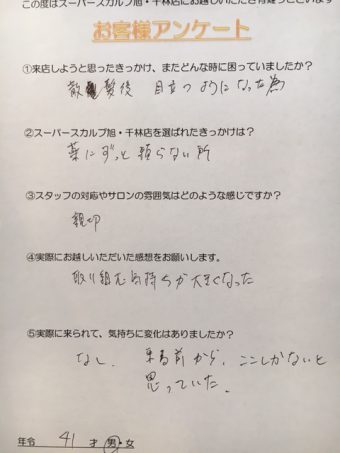 この度はスーパースカルプ旭・千林店にお越しいただき有難うございま
お客様アンケート
①来店しようと思ったきっかけ、またどんな時に困っていましたか？
散髪後 目立つようになった為
②スーパースカルプ旭・千林店を選ばれたきっかけは？
薬にずっと頼らない所
③スタッフの対応やサロンの雰囲気はどのような感じですか？
親切
④実際にお越しいただいた感想をお願いします。
取り組む気持ちが大きくなった
⑤実際に来られて、気持ちに変化はありましたか？
なし、来る前から、ここしかないと
思っていた。
年令 41 才 男・女